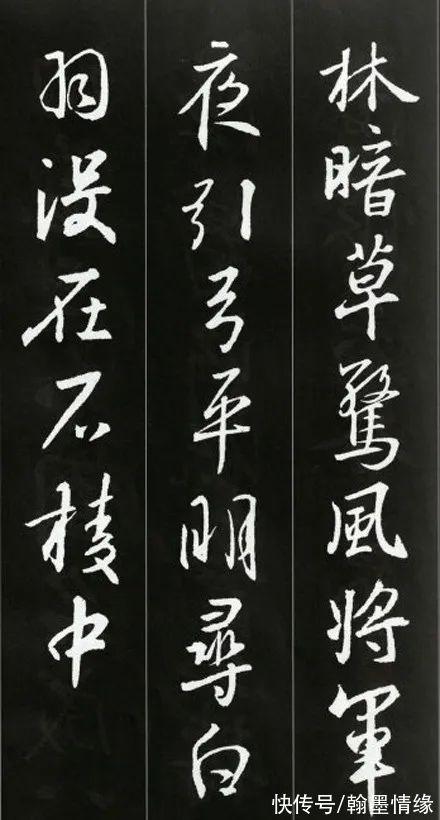 林暗草驚風將軍
夜引弓平明尋白
羽沒在石棱中
快传号/翰墨情缘